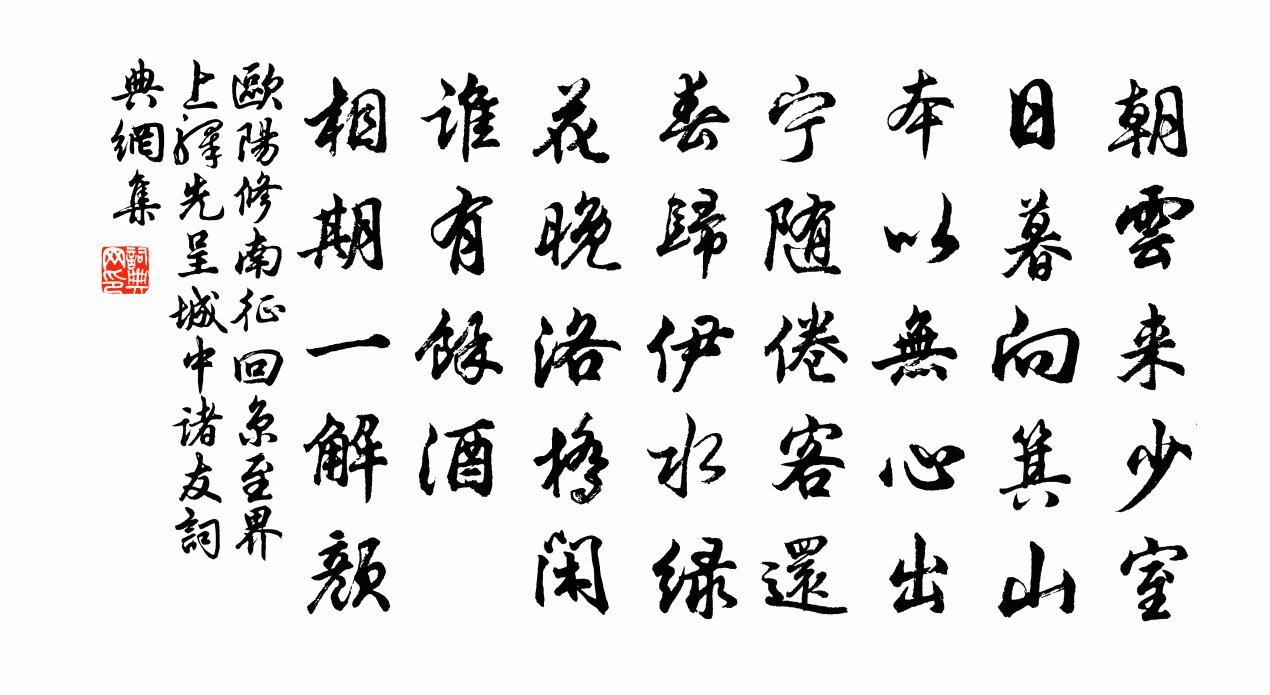 朝雲来少室
日暮向箕山
本以無心出
宁随倦客還
春歸伊水绿
花晚洛橋闲
谁有餘酒
相期一解颜
歐陽修南征回京至界
上驛先呈城中诸友詞
典網集
詞典
网印